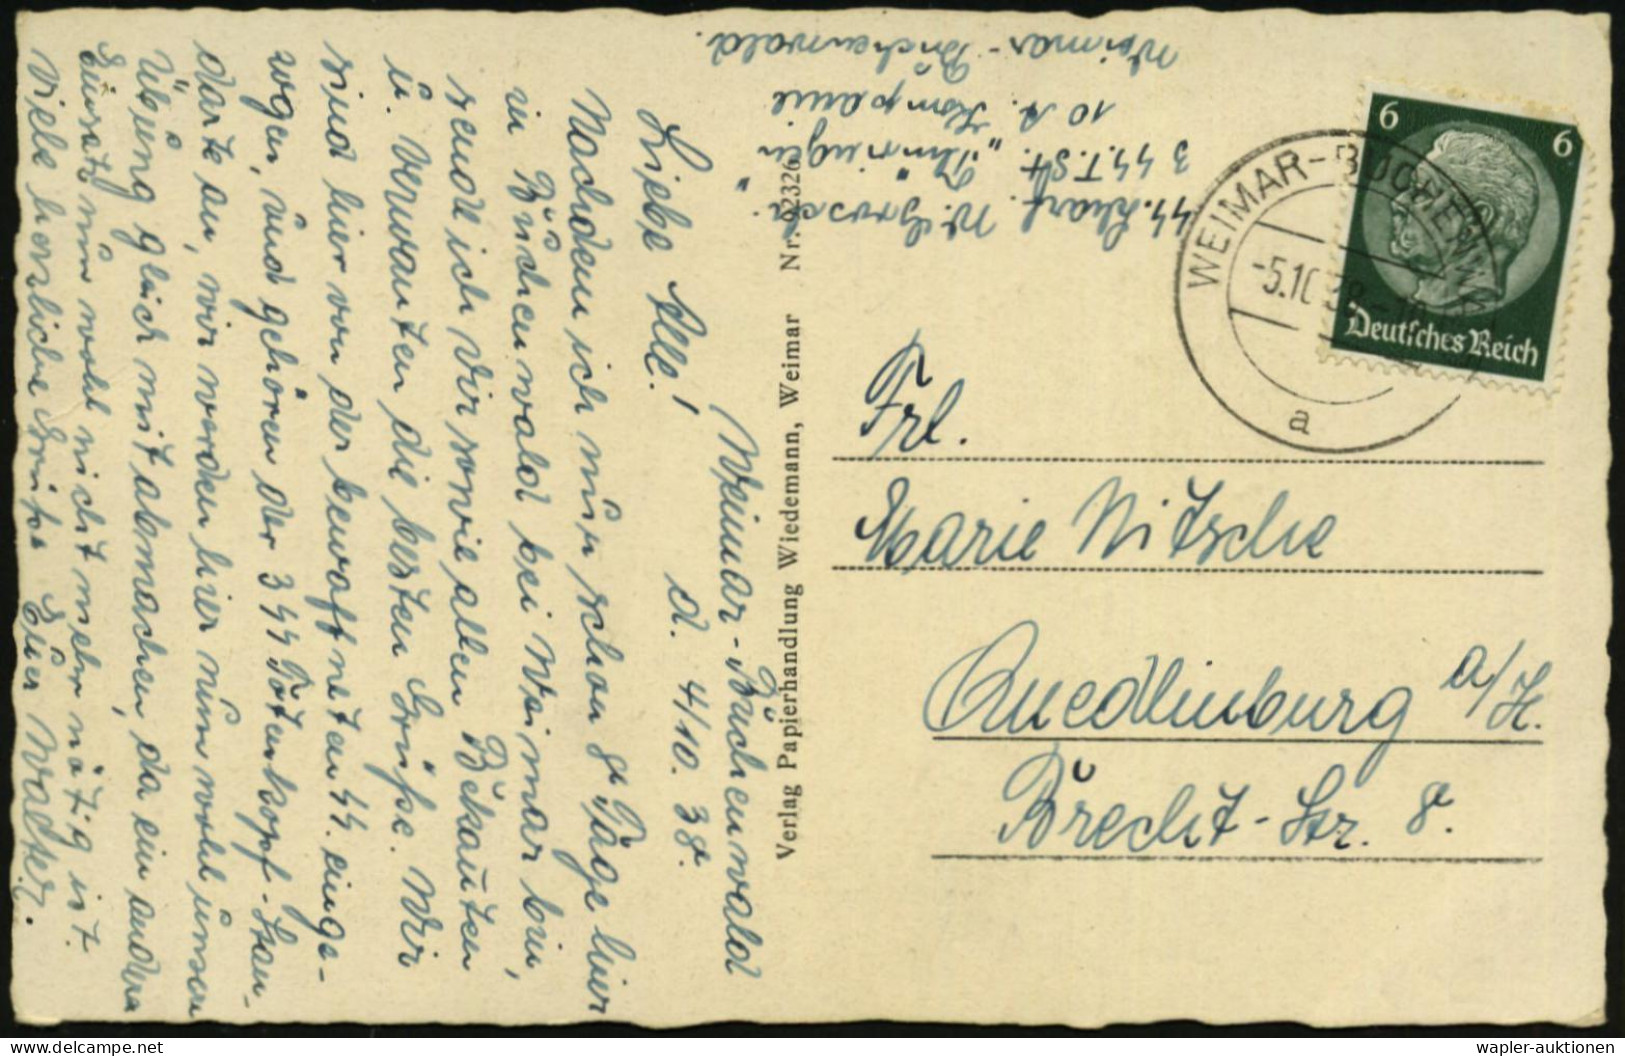 Weimar-Buchenwald
d. 4/10. 38.
Liebe Alle!
Nachdem ich nun schon 8 Tage hier
in Buchenwald bei Weimar bin,
sende ich Dir sowie allen Bekannten
u. Verwanten die besten Grüße. Wir
sind hier von der bewaffneten SS. einge-
wogen, und gehören der 3 SS Totenkopf-Stan-
darte an, wir werden hier nun wohl unsere
Übung gleich mit abmachen, da ein anderer
Einsatz nun wohl nicht mehr nötig ist.
Viele herzliche Grüße Euer Walter.
SS. Scharf. W. Grosch
3 SS.T.St. „Thüringen"
10 A. Kompanie
Weimar-Buchenwald.
Verlag Papierhandlung Wiedemann, Weimar Nr. 92326
WEIMAR-BUCHENWALD
-5.10.38
a
6 6
Deutsches Reich
Frl.
Marie Nitsche
Quedlinburg a/H.
Brecht-Str. 8.
© wapler-auktionen